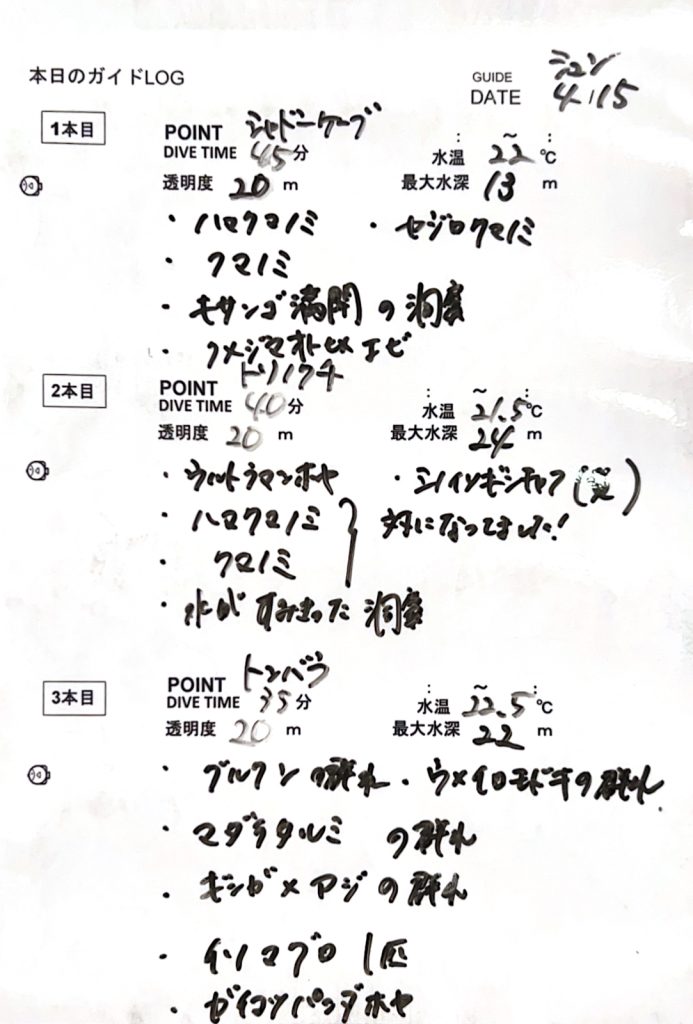 本日のガイドLOG
GUIDE シュン
DATE 4.15
1本目 POINT シャドーケーブ : ~ :
DIVE TIME 45分 水温 22℃
透明度 20 m 最大水深 13 m
・ハマクマノミ ・セジロクマノミ
・クマノミ
・キサンゴ満開の洞窟
・クメジマオトヒメエビ
2本目 POINT トリノクチ : ~ :
DIVE TIME 40分 水温 21.5℃
透明度 20 m 最大水深 24 m
・ウルトラマンホヤ ・シライソギンチャク( )
・ハマクマノミ
・クマノミ
対になってました!
・水がすみきった洞窟
3本目 POINT トンバラ : ~ :
DIVE TIME 35分 水温 22.5℃
透明度 20 m 最大水深 22 m
・グルクンの群れ ・ウメイロモドキの群れ
・マダラタルミの群れ
・ギンガメアジの群れ
・イソマグロ 1匹
・ガイコツパンダホヤ